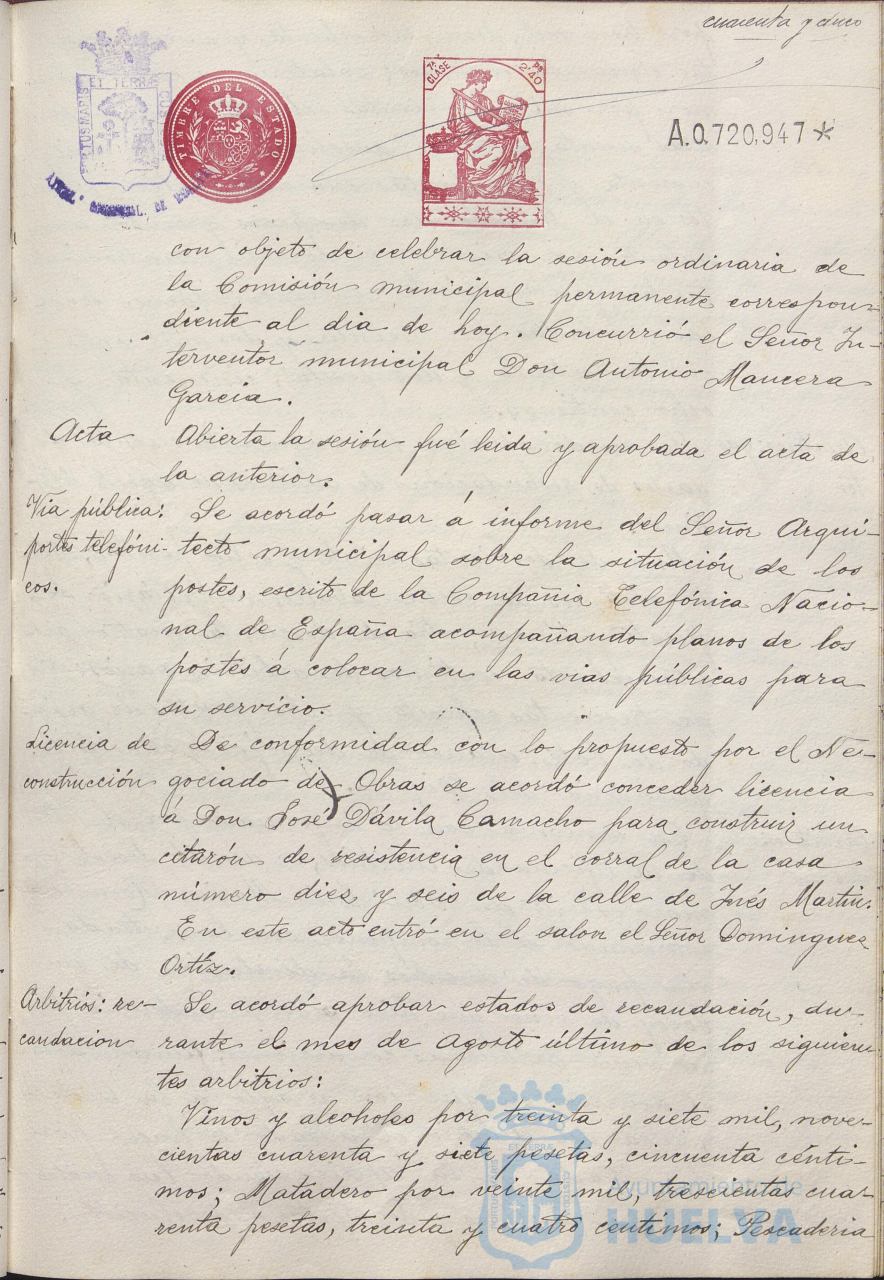 cuarenta y cinco
PORTUS MARIS ET TERRÆ CUSTODIA
TIMBRE DEL ESTADO
7ª CLASE
2'40
A.0.720,947*
con objeto de celebrar la sesión ordinaria de
la Comisión municipal permanente correspon-
diente al dia de hoy. Concurrió el Señor In-
terventor municipal Don Antonio Mancera
Garcia.
Acta
Abierta la sesión fué leida y aprobada el acta de
la anterior.
Vía pública:
postes telefóni-
cos.
Se acordó pasar á informe del Señor Arqui-
tecto municipal sobre la situación de los
postes, escrito de la Compañia Telefónica Nacio-
nal de España acompañando planos de los
postes á colocar en las vias públicas para
su servicio.
Licencia de
construcción
De conformidad con lo propuesto por el Ne-
gociado de Obras se acordó conceder licencia
á Don José Dávila Camacho para construir un
citarón de resistencia en el corral de la casa
número diez y seis de la calle de Inés Martin.
En este acto entró en el salon el Señor Dominguez
Ortíz.
Arbitrios: re-
caudacion
Se acordó aprobar estados de recaudación, du-
rante el mes de Agosto último de los siguien-
tes arbitrios:
Vinos y alcoholes por treinta y siete mil, nove-
cientas cuarenta y siete pesetas, cincuenta cénti-
mos; Matadero por veinte mil, trescientas cua-
renta pesetas, treinta y cuatro centimos; Pescaderia
Ayuntamiento de
HUELVA